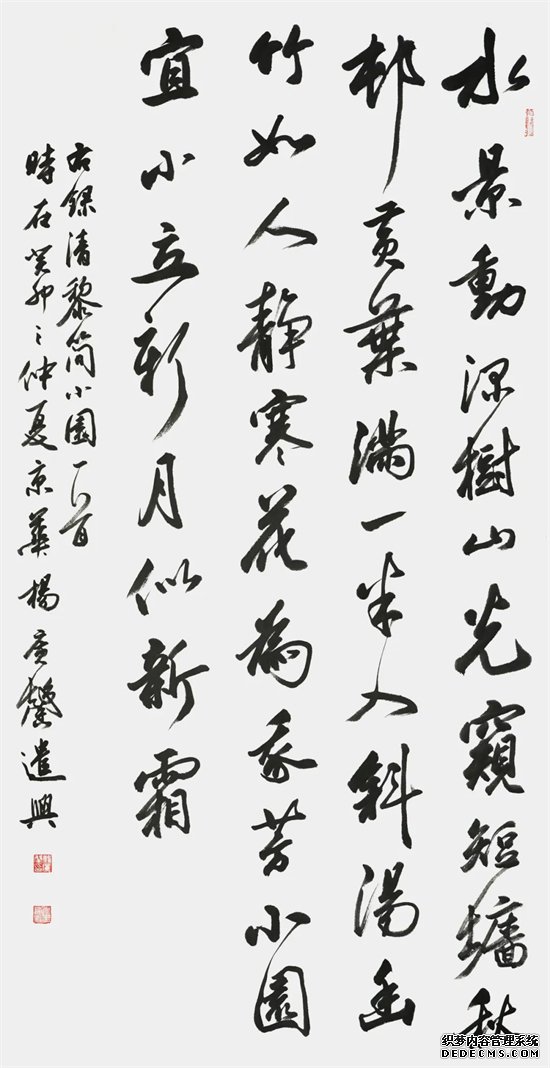 水景動深樹山光窺短墻秋
邨黃葉滿一半入斜陽幽
竹如人靜寒花為我芳小園
宜小立新月似新霜
右録清黎簡小園一首
時在癸卯之仲夏京華楊廣馨遣興
织梦内容管理系统
DEDECMS.COM